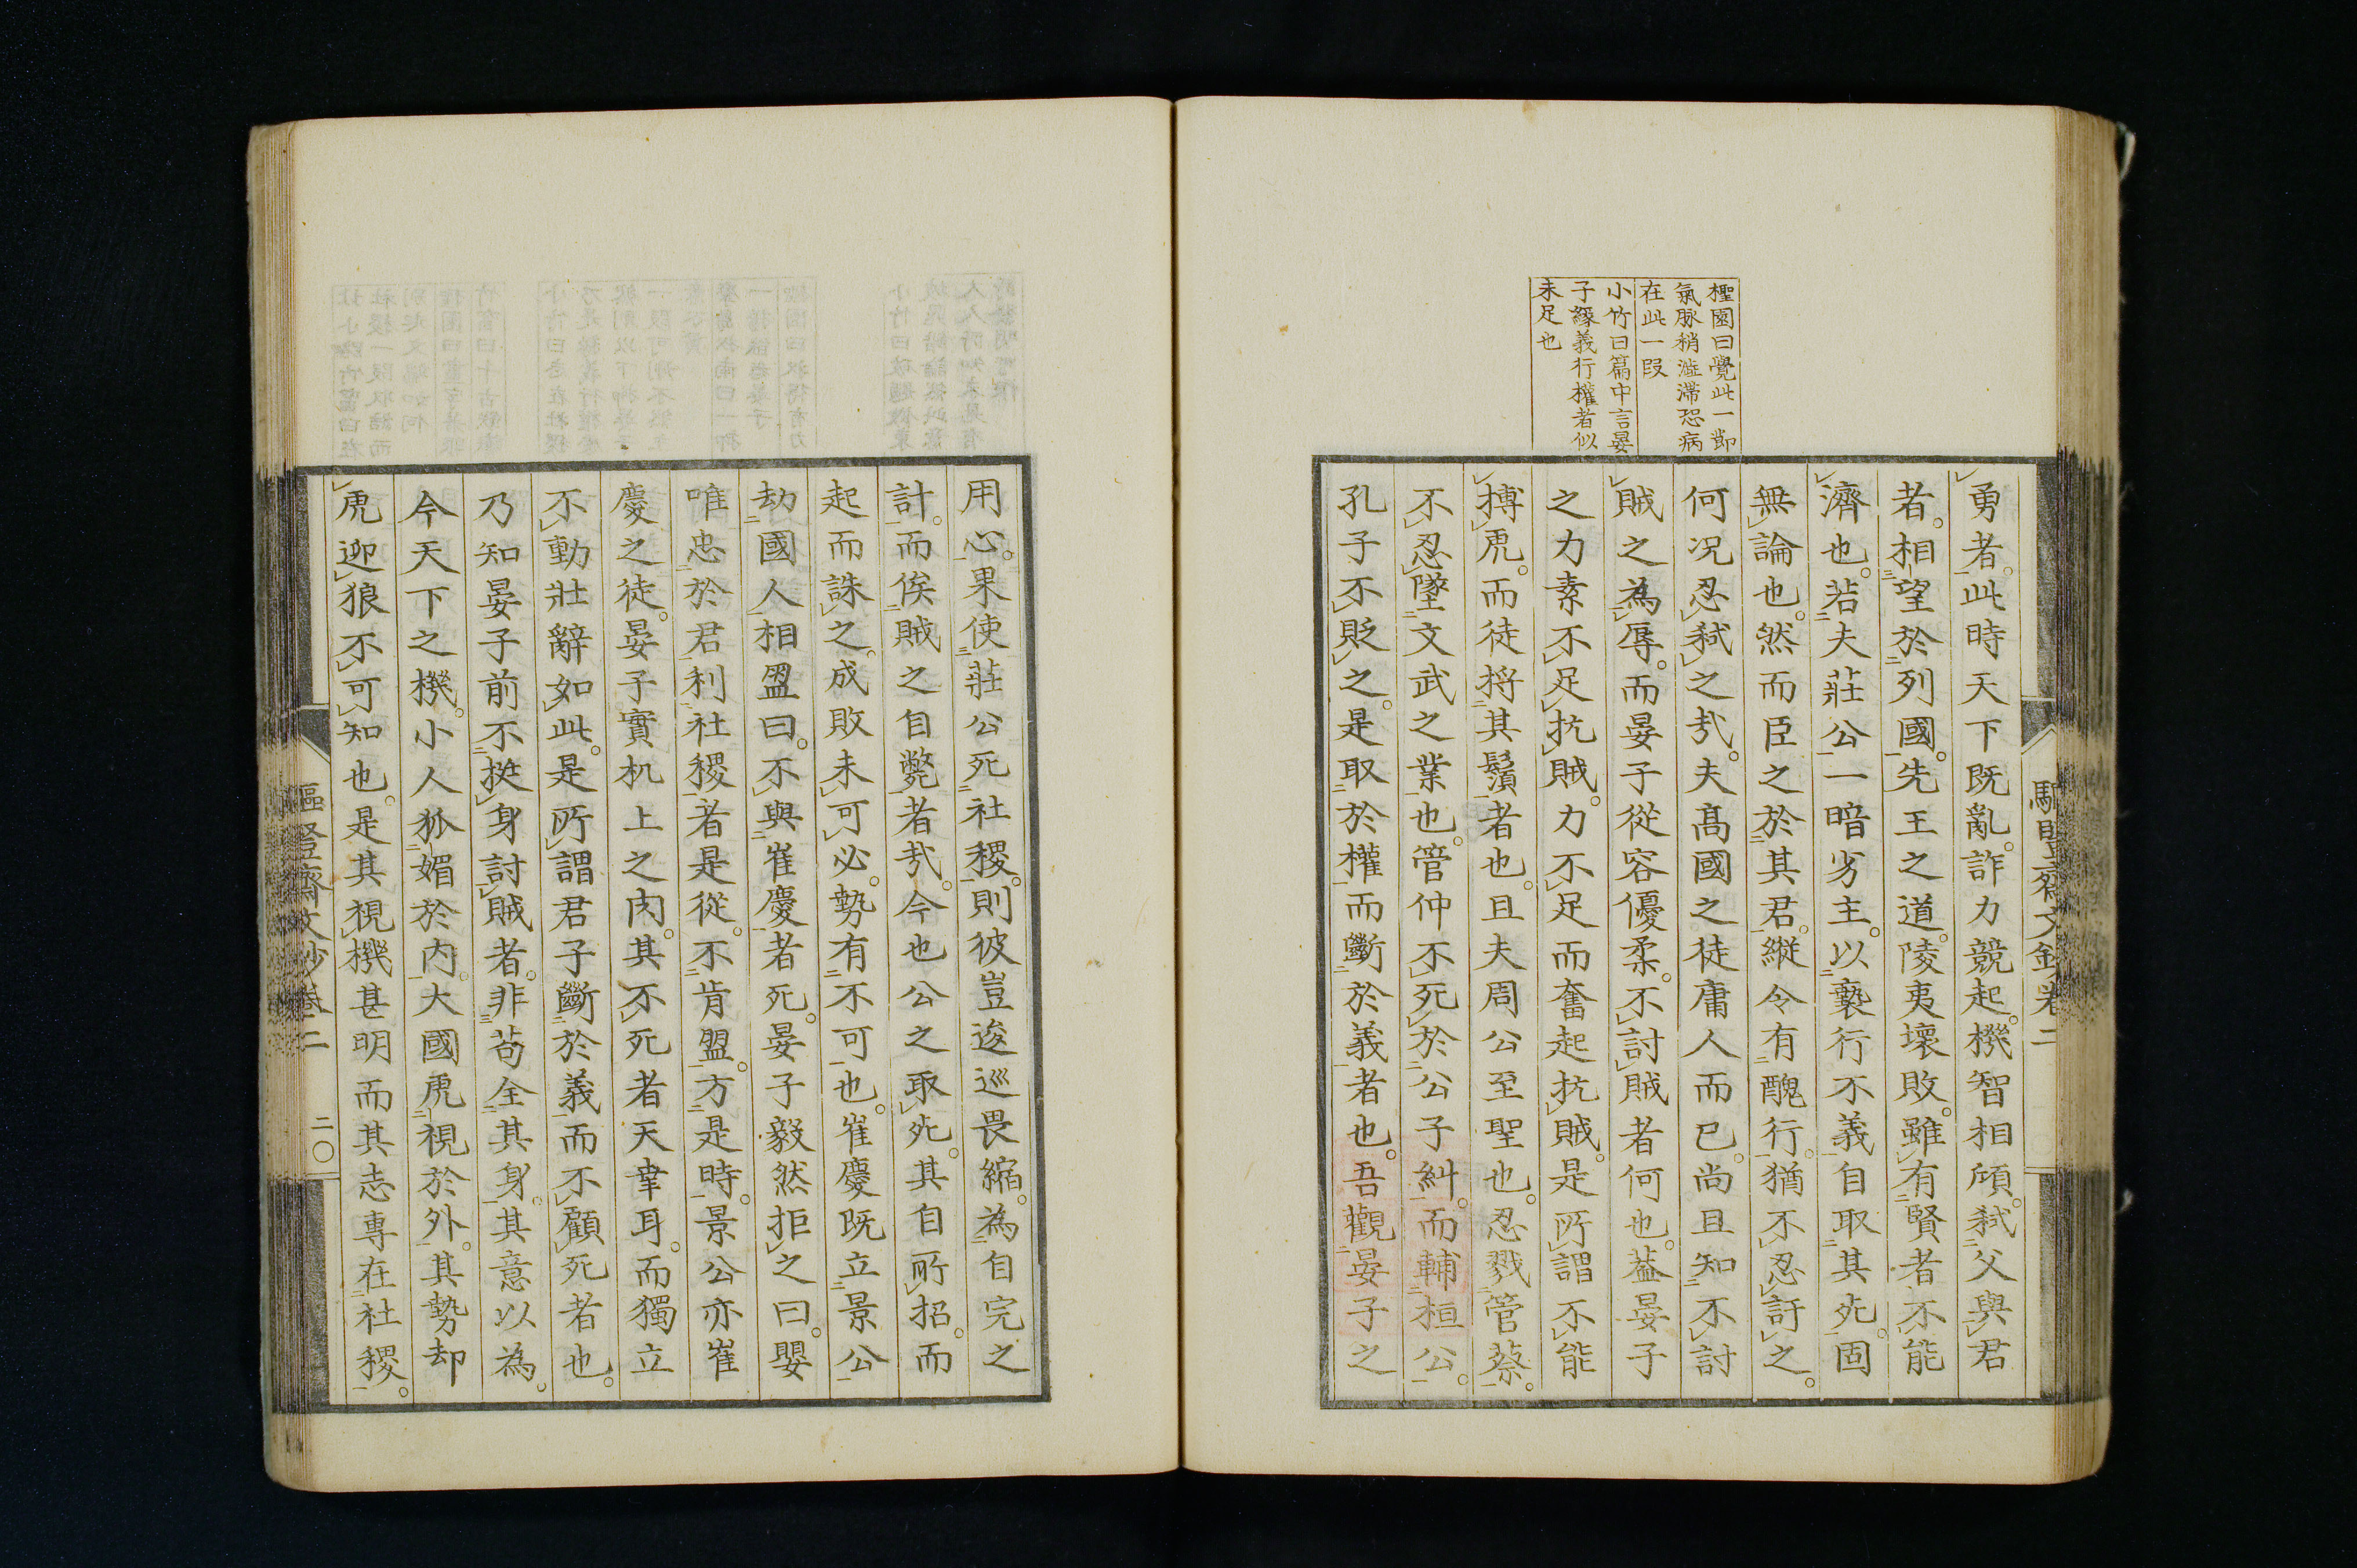 檉園曰覺此一節
氣脉稍澁滯恐病
在此一叚
小竹曰篇中言晏
子緣義行權者似
未足也
勇者。此時天下既亂。詐力競起。機智相傾。弒父與君
者。相望於列國。先王之道。陵夷壞敗。雖有賢者不能
濟也。若夫莊公一暗劣主。以褻行不義自取其死。固
無論也。然而臣之於其君。縱令有醜行。猶不忍訐之。
何况忍弒之哉。夫高國之徒庸人而已。尚且知不討
賊之為辱。而晏子從容優柔。不討賊者何也。葢晏子
之力素不足抗賊。力不足而奮起抗賊。是所謂不能
搏虎。而徒捋其鬚者也。且夫周公至聖也。忍戮管蔡。
不忍墜文武之業也。管仲不死於公子糾。而輔桓公。
孔子不貶之。是取於權而斷於義者也。吾觀晏子之
用心。果使莊公死社稷。則彼豈逡巡畏縮。為自完之
計。而俟賊之自斃者哉。今也公之取死。其自所招。而
起而誅之。成敗未可必。勢有不可也。崔慶既立景公
劫國人相盟曰。不與崔慶者死。晏子毅然拒之曰。嬰
唯忠於君利社稷者是從。不肯盟。方是時。景公亦崔
慶之徒。晏子實机上之肉。其不死者天幸耳。而獨立
不動壯辭如此。是所謂君子斷於義而不顧死者也。
乃知晏子前不挺身討賊者。非苟全其身。其意以為。
今天下之機。小人狐媚於内。大國虎視於外。其勢却
虎迎狼不可知也。是其視機甚明而其志專在社稷。
齋文鈔卷二
二〇